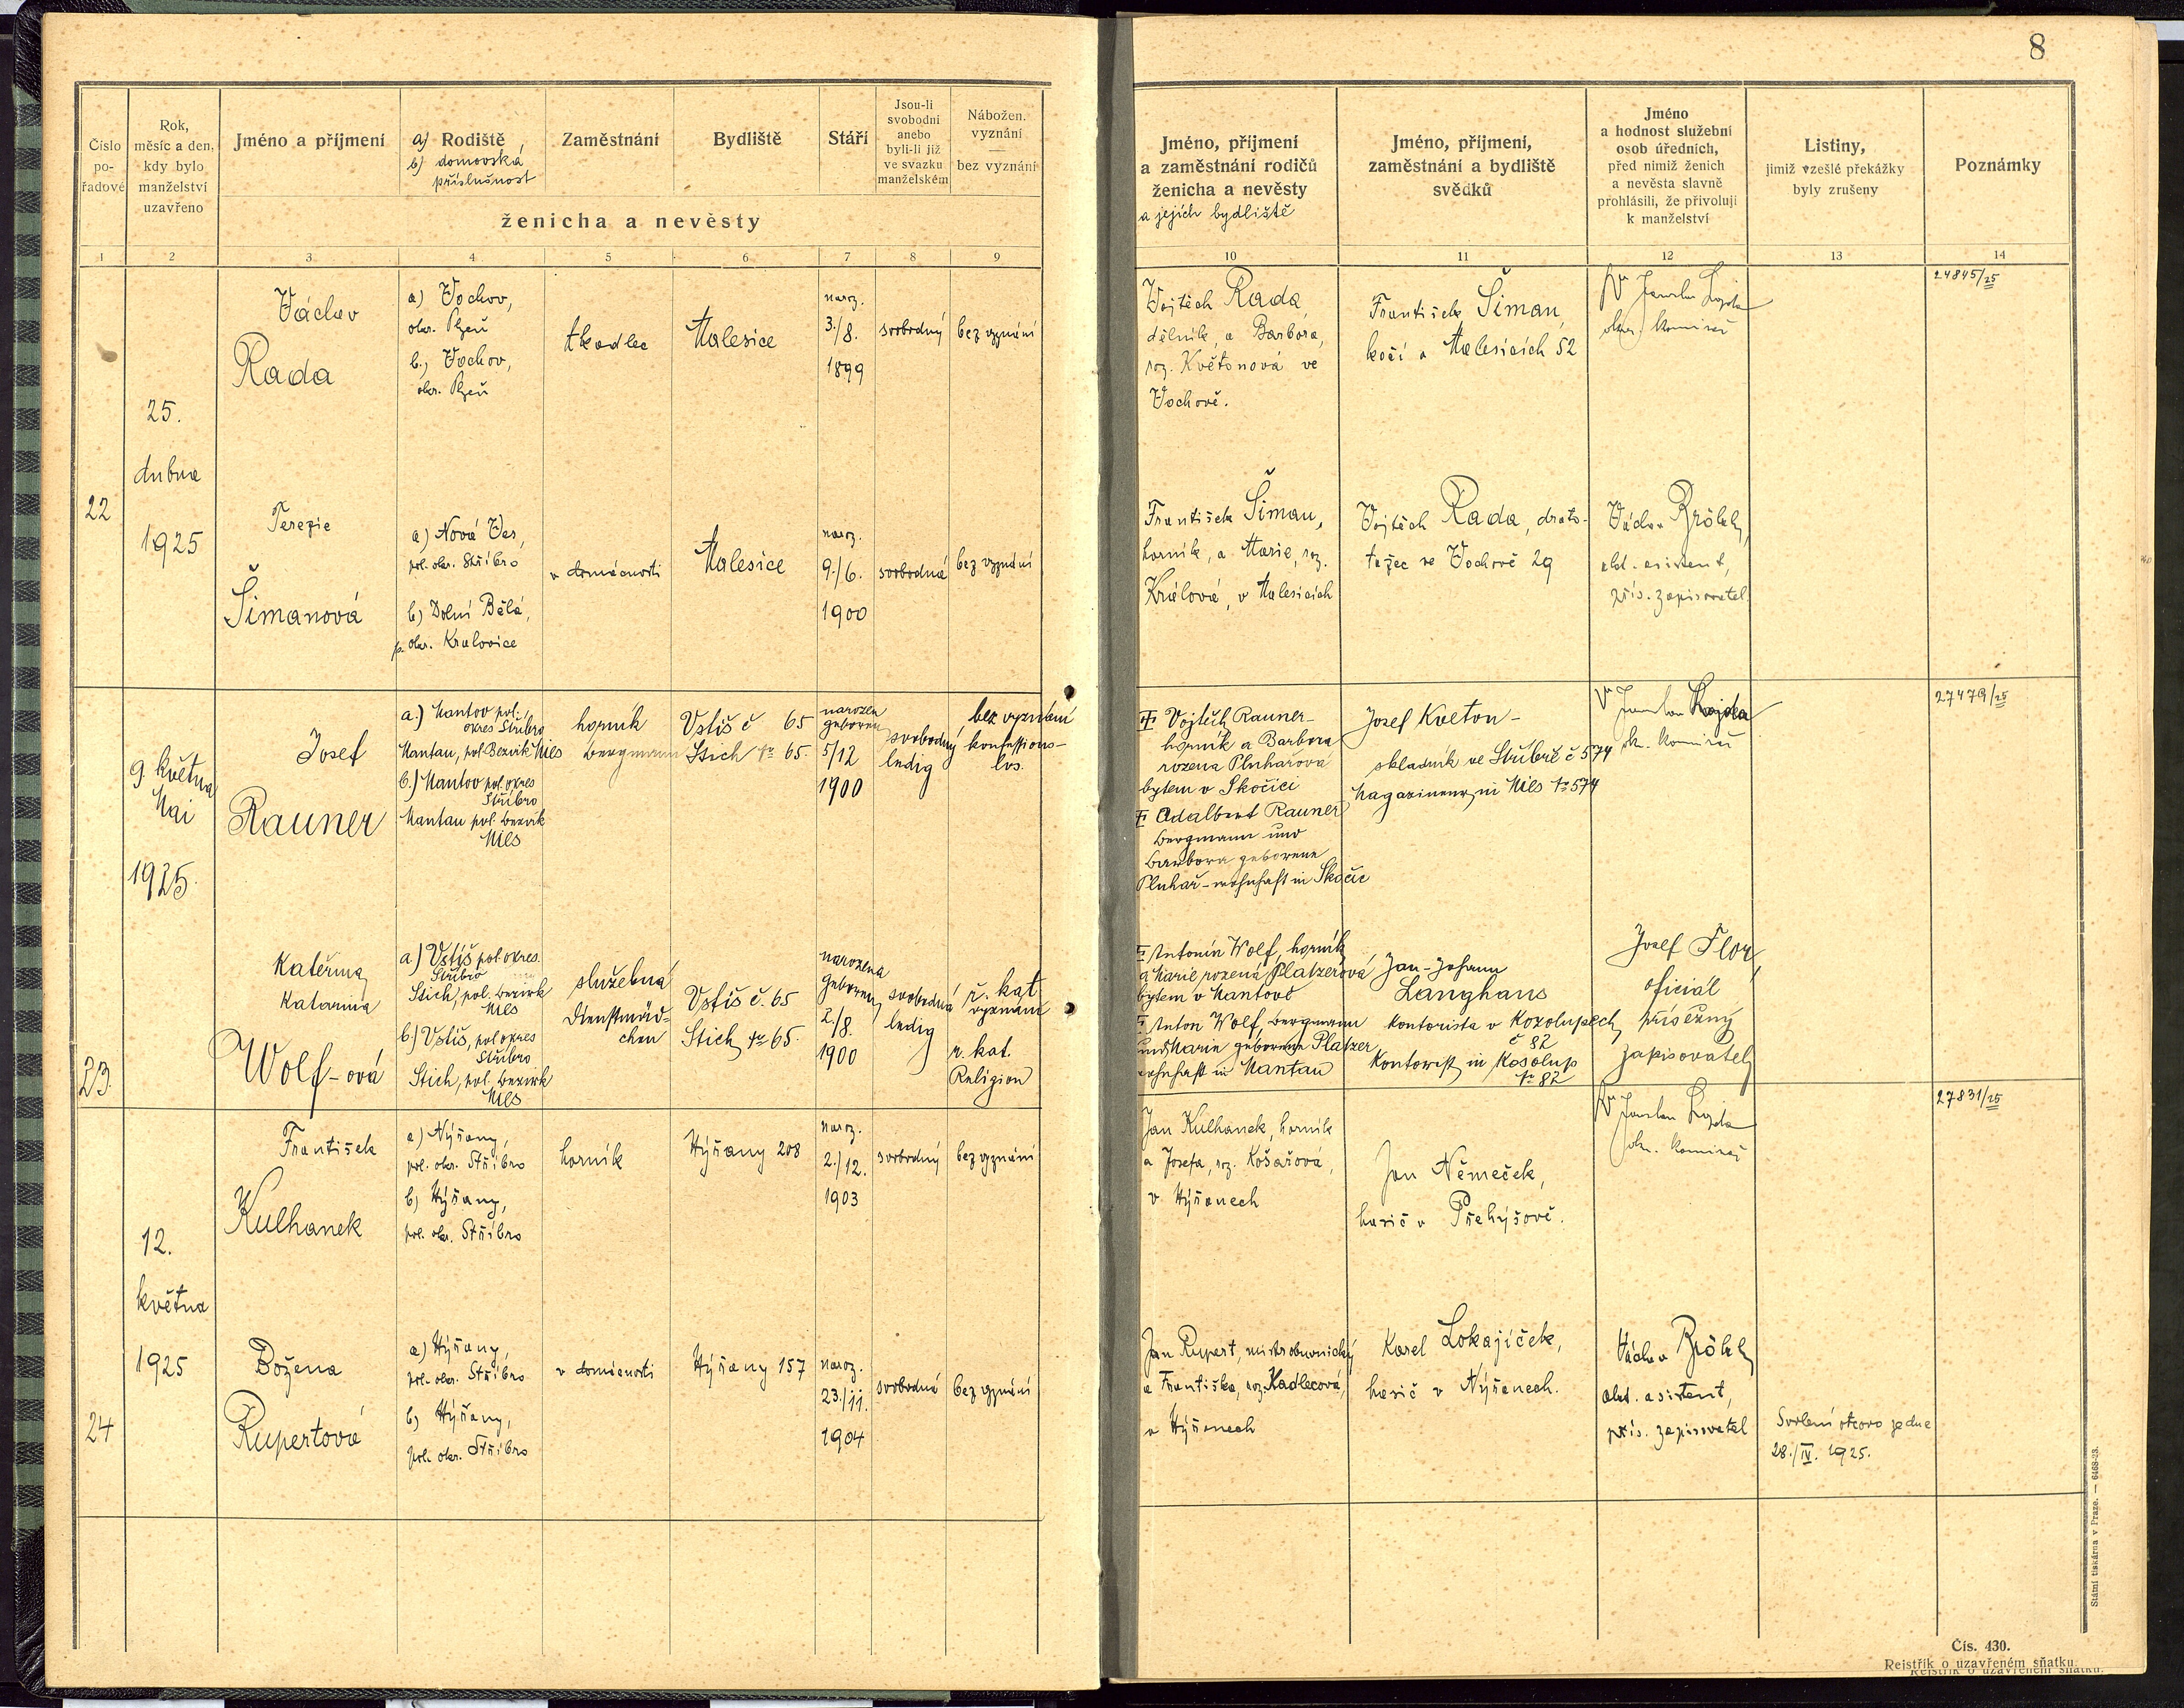 8
Číslo pořadové
Rok, měsíc a den, kdy bylo manželství uzavřeno
Jméno a příjmení
a) Rodiště
b) domovská příslušnost
Zaměstnání
Bydliště
Stáří
Jsou-li svobodni anebo byli-li již ve svazku manželském
Nábožen. vyznání
bez vyznání
ženicha a nevěsty
Jméno, příjmení a zaměstnání rodičů ženicha a nevěsty
a jejich bydliště
Jméno, příjmení, zaměstnání a bydliště svědků
Jméno a hodnost služební osob úředních, před nimiž ženich a nevěsta slavně prohlásili, že přivolují k manželství
Listiny,
jimiž vzešlé překážky byly zrušeny
Poznámky
1 2 3 4 5 6 7 8 9 10 11 12 13 14
22
25.
dubna
1925
Václav
Rada
a) Vochov,
okr. Plzeň
b.) Vochov,
okr. Plzeň
tkadlec
Malesice
naroz.
3./8.
1899
svobodný
bez vyznání
Vojtěch Rada,
dělník, a Barbora,
roz. Květonová ve
Vochově.
František Šiman,
kočí v Malesicích 52
okr. komisař
24845/25
Terezie
Šimanová
a) Nová Ves,
pol. okr. Stříbro
b) Dolní Bělá,
p. okr. Kralovice
v domácnosti
Malesice
naroz.
9./6.
1900
svobodná
bez vyznání
František Šiman,
horník, a Marie, roz.
Králová, v Malesicích
Vojtěch Rada, dráto-
tažec ve Vochově 29
Václav
asistent,
přís. zapisovatel.
23.
9. května
Mai
1925.
Josef
Rauner
a.) Mantov pol.
okres Stříbro
Mantau, pol. Bezirk Mies
b.) Mantov pol. okres
Stříbro
Mantau pol. Bezirk
Mies
horník
Bergmann
Vstiš č 65
Stich № 65.
narozen
geboren
5/12
1900
svobodný
ledig
bez vyznání
konfessions-
los.
I Vojtěch Rauner-
horník a Barbora
rozená Pluhařová
bytem v Skočici
II Adalbert Rauner
Bergmann und
Barbora geborene
Pluhař - wohnhaft in Skočic
Josef Kveton -
skladník ve Stříbře č 574
Magazineur in Mies № 574
okr. komisař
27479/25
Kateřina
Katarina
Wolf-ová
a) Vstiš pol. okres.
Stříbro
Stich, pol. Bezirk
Mies
b.) Vstiš, pol okres
Stříbro
Stich, pol. Bezirk
Mies
služebná
Dienstmäd-
chen
Vstiš č. 65
Stich № 65.
narozena
geboren
2./8.
1900
svobodná
ledig
ř. kat.
vyznání
r. kat.
Religion
I Antonín Wolf, horník
a Marie rozená Platzerová
bytem v Mantově
II Anton Wolf, Bergmann
und Marie geborene Platzer
wohnhaft in Mantau
Jan-Johann
Langhans
kontorista v Kozolupech
č 82
Kontorist in Kosolup
№ 82
Josef Flor,
oficiál
přísežný
zapisovatel
24
12.
května
1925
František
Kulhanek
a) Nýřany,
pol. okr. Stříbro
b) Nýřany,
pol. okr. Stříbro
horník
Nýřany 208
naroz.
2./12.
1903
svobodný
bez vyznání
Jan Kulhanek, horník
a Josefa, roz. Košařová,
v Nýřanech
Jan Němeček,
hasič v Přehýšově.
okr. komisař
27831/25
Božena
Rupertová
a) Nýřany,
pol. okr. Stříbro
b) Nýřany,
pol. okr. Stříbro
v domácnosti
Nýřany 157
naroz.
23./11.
1904
svobodná
bez vyznání
Jan Rupert, mistr obuvnický
a Františka, roz. Kadlecová,
v Nýřanech
Karel Lokajíček,
hasič v Nýřanech.
Václav
asistent,
přís. zapisovatel
Svolení otcovo ze dne
28./IV. 1925.
Státní tiskárna v Praze. — 6468-23.
Čís. 430.
Rejstřík o uzavřeném sňatku.